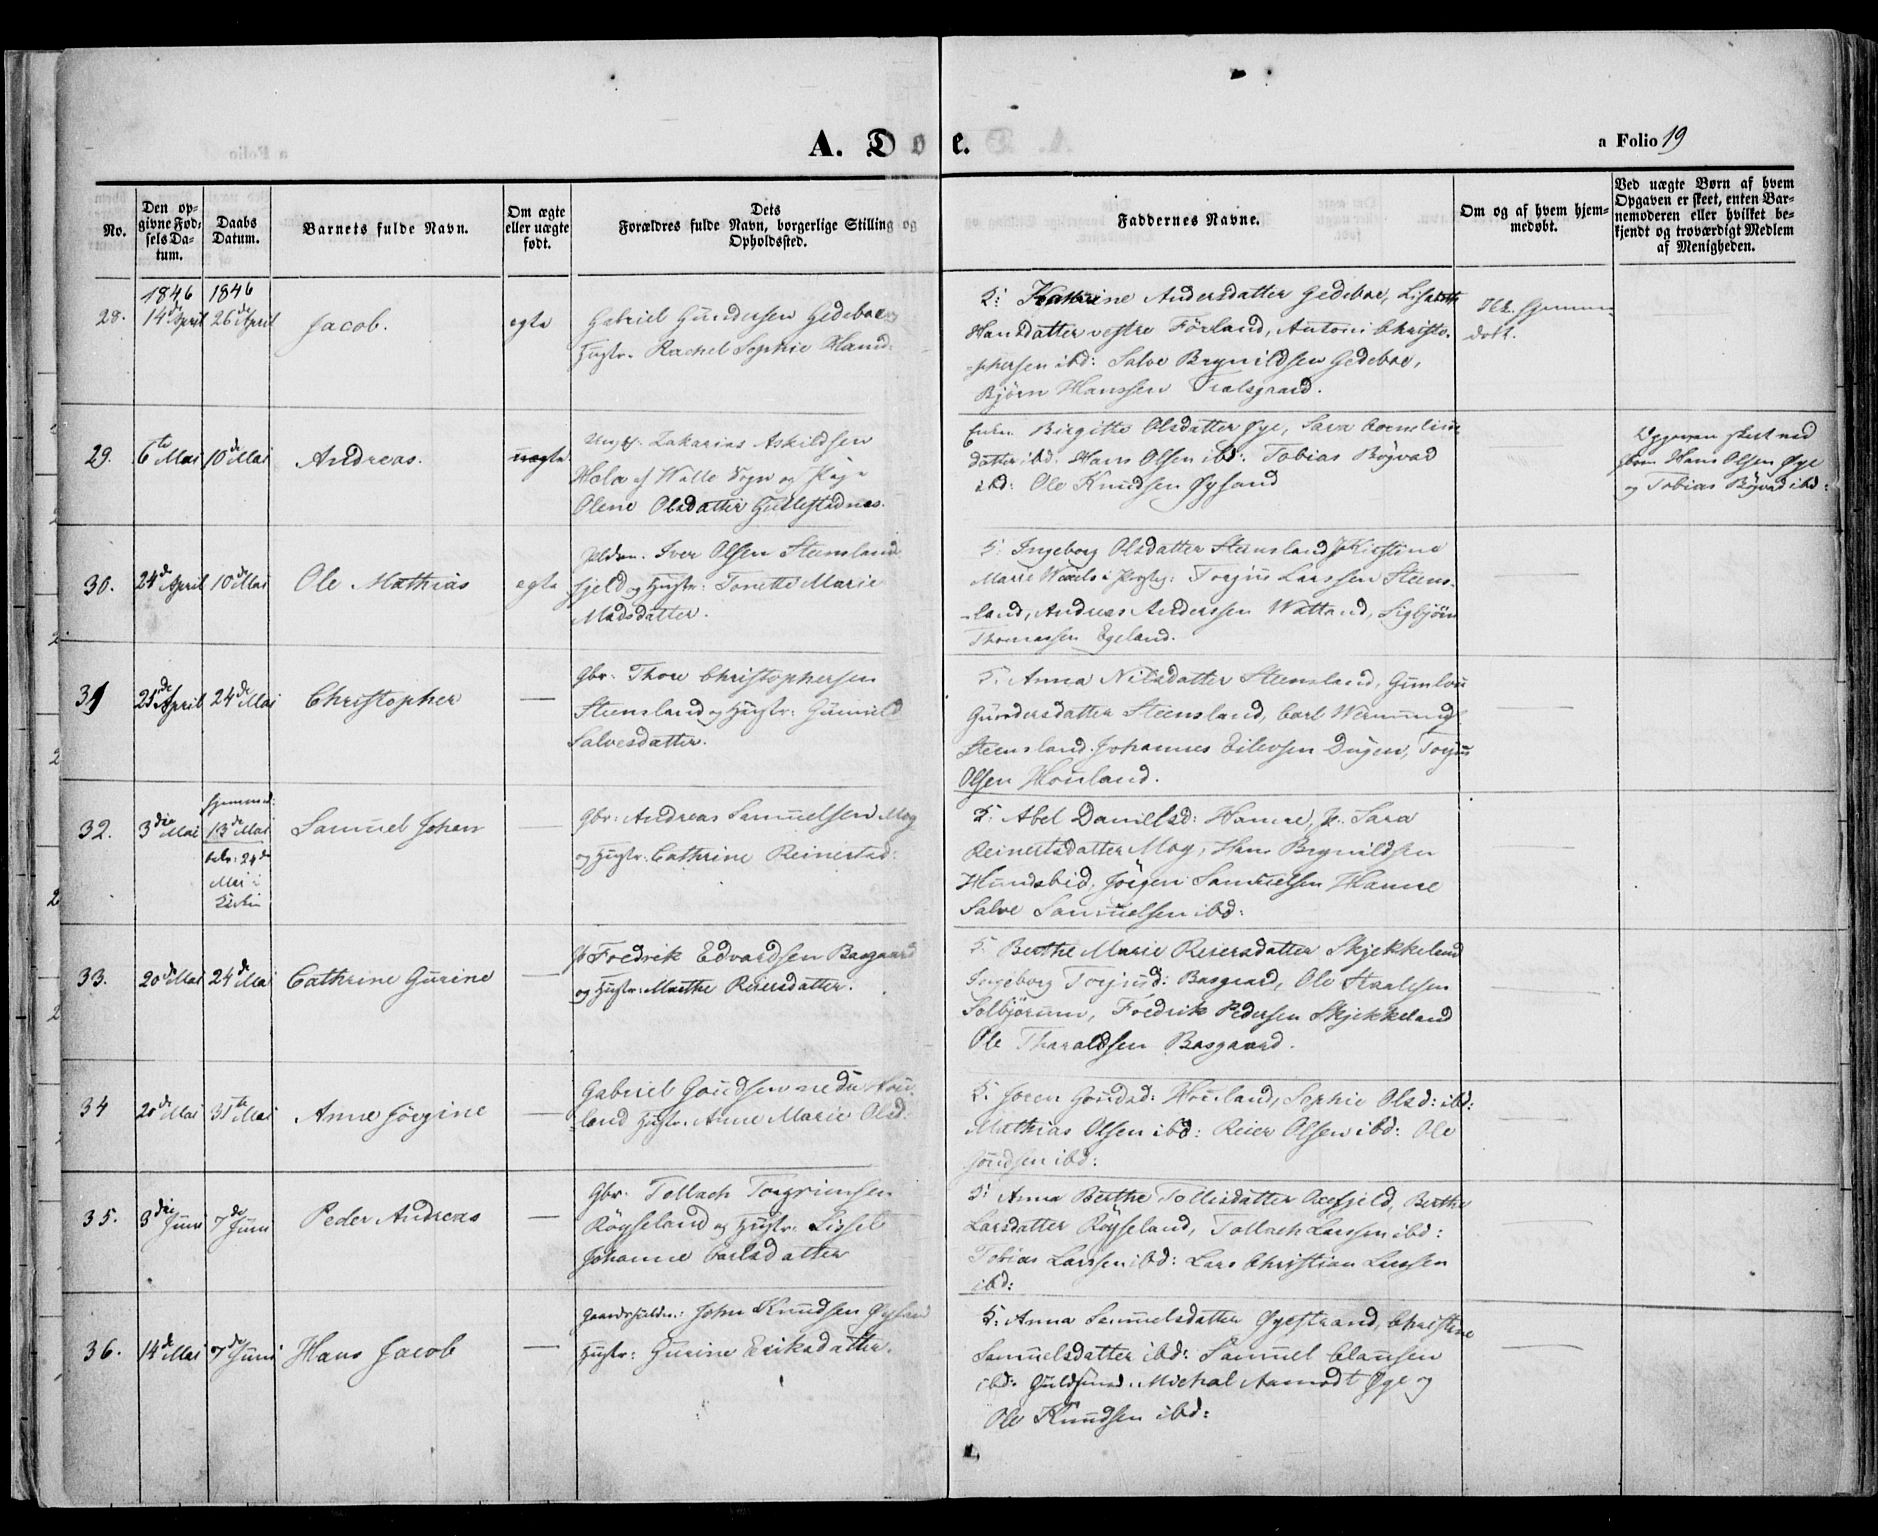 A. Døbte.
a Folio 19
No.
Den op-
givne Fød-
sels Da-
tum.
Daabs
Datum.
Barnets fulde Navn.
Om ægte
eller uægte
født.
Dets
Forældres fulde Navn, borgerlige Stilling og
Opholdssted.
Faddernes Navne.
Om og af hvem hjem-
medøbt.
Ved uægte Børn af hvem
Opgaven er skeet, enten Bar-
nemoderen eller hvilket be-
kjendt og troværdigt Medlem
af Menigheden.
1846 1846
28. 14de April 26de April Jacob. egte
Gabriel Gundersen Gedeboe
Hustr. Rachel Sophie Hansd:
5: Kathrine Andersdatter Gedeboe, Lisabeth
Hansdatter vestre Förland, Antoni Christo-
-phersen ibd: Salve Brynildsen Gedeboe,
Björn Hanssen Tralsgaard.
Ikke hjemme-
döbt.
29. 6te Mai 10de Mai Andreas. uægte
Ungk. Zakarias Askildsen
Hola af Walle Sogn og
Olene Olsdatter Gullestadnes.
Birgitte Olsdatter Øye, Sara Cornelius
datter ibd. Hans Olsen ibd: Tobias Rögvad
ibd: Ole Knudsen Øysand
Opgaven skeet ved
Hans Olsen Øye
og Tobias Rögvad ibd:
30. 24de April 10de Mai Ole Mathias egte
Iver Olsen Steensland
fjeld og Hustr: Tonette Marie
Madsdatter.
5: Ingeborg Olsdatter Steensland, Kirstine
Marie Torjus Larssen Steens-
-land, Andreas Anderssen Watland, Sigbjörn
Thomassen Egeland.
31 25de April 24de Mai Christopher —
Gbr. Thore Christophersen
Steensland og Hustr: Gunnild
Salvesdatter.
5. Anna Nilsdatter Steensland, Gunlou
Gundersdatter Steensland, Carl Wermund
Steensland. Johannes Eilevsen Dugen, Torjus
Olsen Houland.
32. 3die Mai
hjemmed:
13de Mai
bekr: 24de
Mai i
Kirken
Samuel Johan —
Gbr: Andreas Samuelsen Moy
og Hustr. Cathrine Reinertsd:
5: Abel Danielsd: Hamre, P. Sara
Reinertsdatter Moy, Hans Brynildsen
Hundsbid, Jörgen Samuelsen Hamre
Salve Samuelsen ibd:
33. 20de Mai 24de Mai Cathrine Gurine —
Fredrik Edvardsen Basgaard
og Hustr: Marthe Reiersdatter.
5. Berthe Marie Reiersdatter Skjekkeland
Ingeborg Torjusd: Basgaard, Ole Staalesen
Solbjörum, Fredrik Pedersen Skjekkeland
Ole Tharaldsen Basgaard.
34 20de Mai 31te Mai Anne Jörgine —
Gabriel Goudsen nedre Hou-
-land Hustr. Anne Marie Olsd:
5. Joren Goudsd: Houland, Sophie Olsd: ibd:
Mathias Olsen ibd: Reier Olsen ibd: Ole
Joudsen ibd:
35. 3die Juni 7de Juni Peder Andreas —
Gbr. Tollach Torgrimsen
Röyseland og Hustr: Sissel
Johanne Carlsdatter
5: Anna Berthe Tollisdatter Oxefjeld, Berthe
Larsdatter Röyseland, Tollach Larssen ibd:
Tobias Larssen ibd: Lars Christian Larssen
ibd:
36. 14de Mai 7de Juni Hans Jacob —
John Knudsen Øysand
Hustr: Gurine Eriksdatter.
5. Anna Samuelsdatter Øyestrand, Christine
Samuelsdatter ibd: Samuel Clausen
ibd. Guldsmed. Michal Aamodt Øye og
Ole Knudsen ibd: